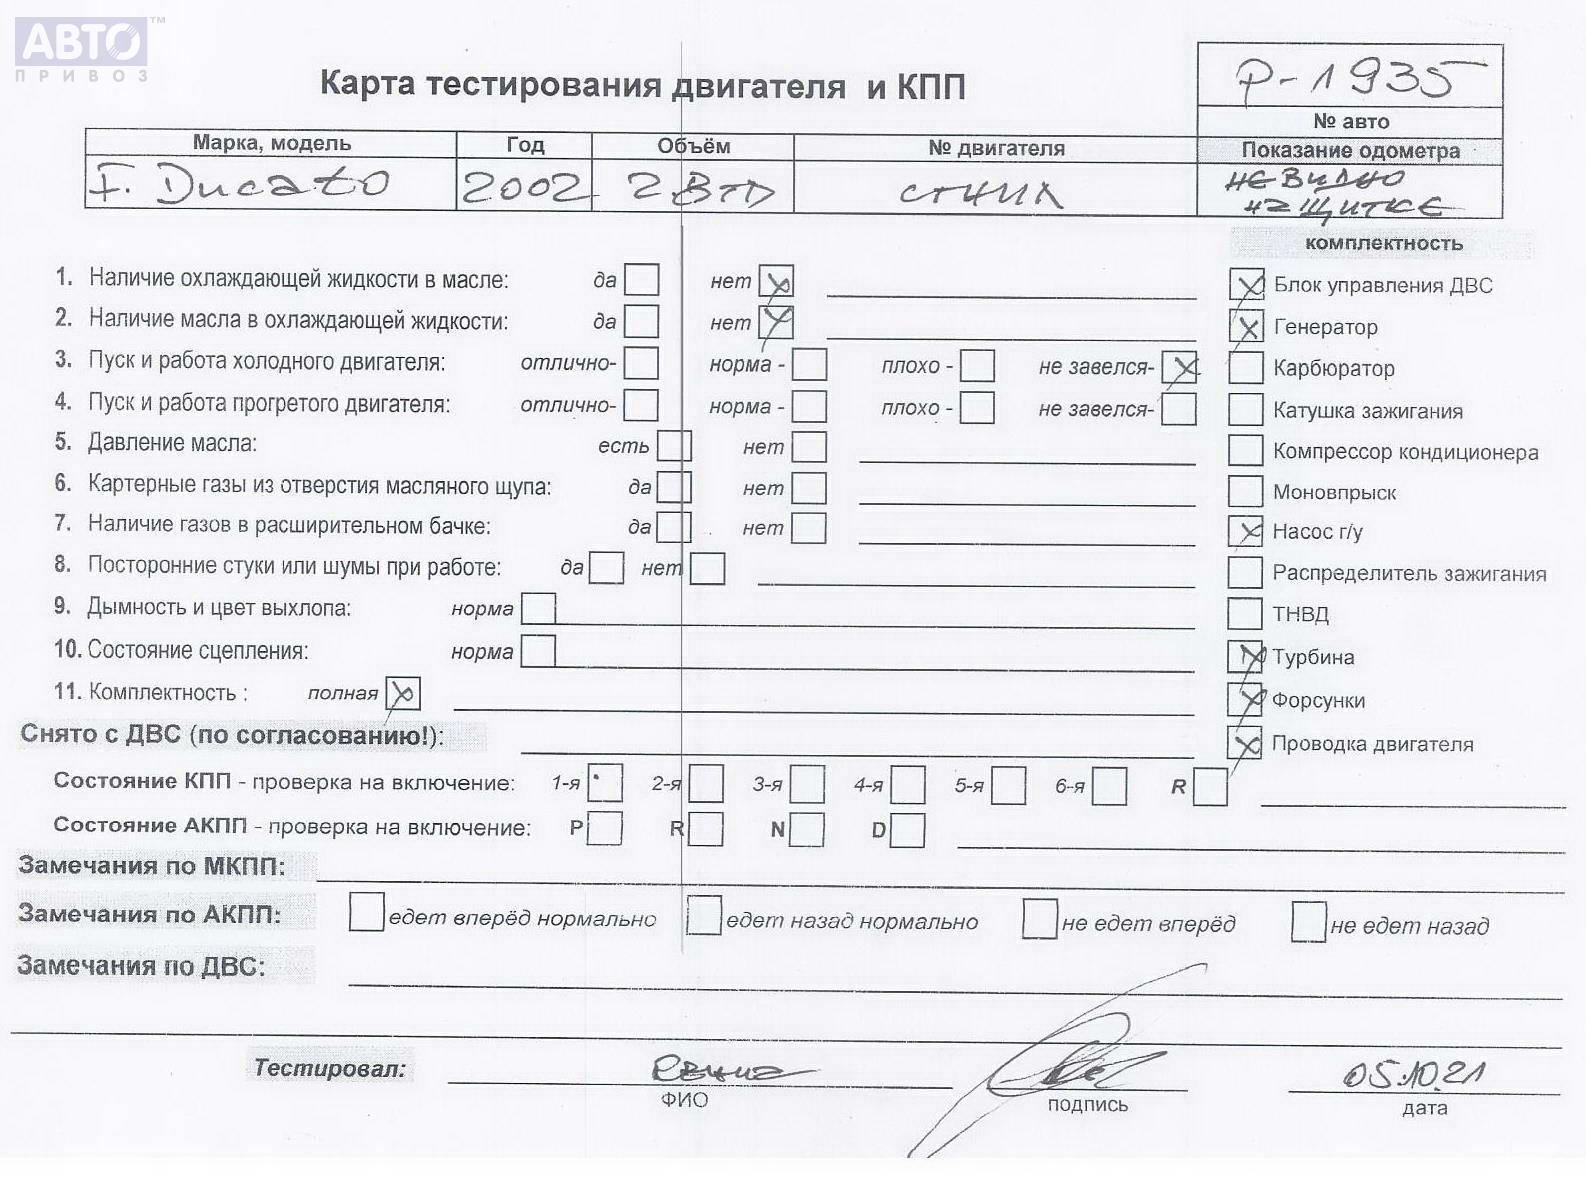 АВТО™
ПРИВОЗ
Карта тестирования двигателя и КПП
Р-1935
№ авто
Марка, модель Год Объём № двигателя Показание одометра
F. Ducato 2002 2.8TD сгнил не видно
на щитке
комплектность
1. Наличие охлаждающей жидкости в масле: да нет Блок управления ДВС
2. Наличие масла в охлаждающей жидкости: да нет Генератор
3. Пуск и работа холодного двигателя: отлично- норма - плохо - не завелся- Карбюратор
4. Пуск и работа прогретого двигателя: отлично- норма - плохо - не завелся- Катушка зажигания
5. Давление масла: есть нет Компрессор кондиционера
6. Картерные газы из отверстия масляного щупа: да нет Моновпрыск
7. Наличие газов в расширительном бачке: да нет Насос г/у
8. Посторонние стуки или шумы при работе: да нет Распределитель зажигания
9. Дымность и цвет выхлопа: норма ТНВД
10. Состояние сцепления: норма Турбина
11. Комплектность : полная Форсунки
Снято с ДВС (по согласованию!): Проводка двигателя
Состояние КПП - проверка на включение: 1-я 2-я 3-я 4-я 5-я 6-я R
Состояние АКПП - проверка на включение: P R N D
Замечания по МКПП:
Замечания по АКПП: едет вперёд нормально едет назад нормально не едет вперёд не едет назад
Замечания по ДВС:
Тестировал: 05.10.21
ФИО подпись дата